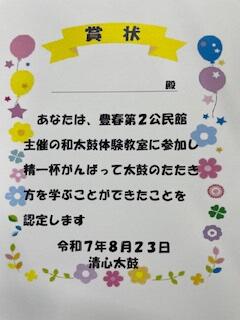 賞状
殿
あなたは、豊春第２公民館
主催の和太鼓体験教室に参加し
精一杯がんばって太鼓のたたき
方を学ぶことができたことを
認定します
令和７年８月２３日
清心太鼓